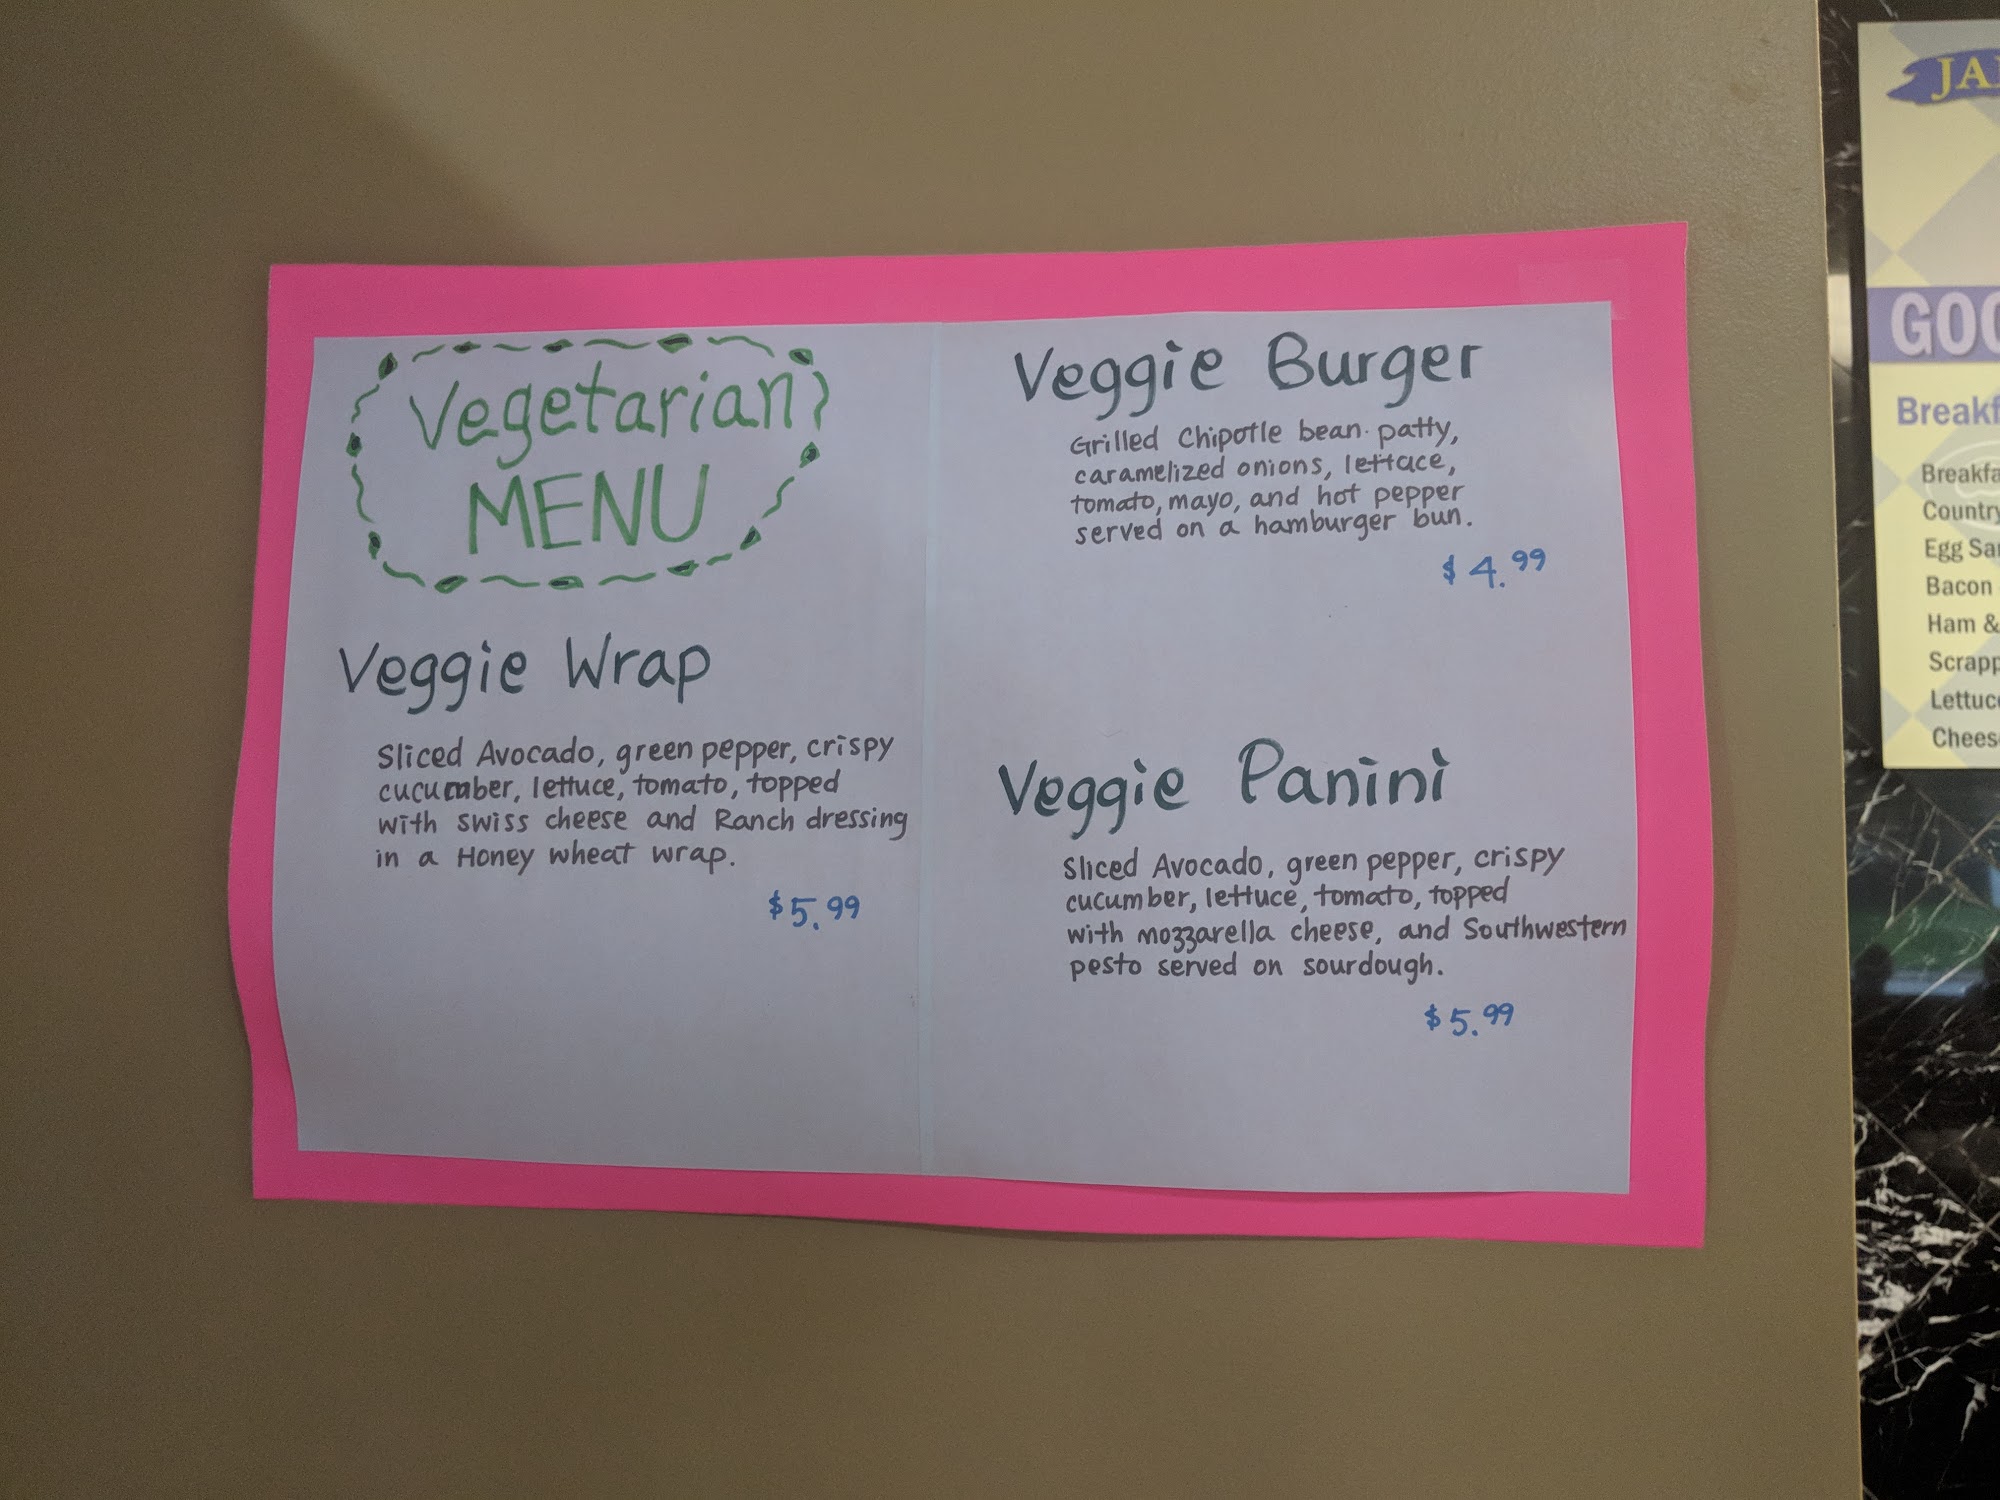 Vegetarian
MENU
Veggie Wrap
Sliced Avocado, green pepper, crispy
cucumber, lettuce, tomato, topped
with swiss cheese and Ranch dressing
in a Honey wheat wrap.
$5.99
Veggie Burger
Grilled Chipotle bean patty,
caramelized onions, lettace,
tomato, mayo, and hot pepper
served on a hamburger bun.
$4.99
Veggie Panini
Sliced Avocado, green pepper, crispy
cucumber, lettuce, tomato, topped
with mozzarella cheese, and Southwestern
pesto served on sourdough.
$5.99
Egg
Bacon
Ham &